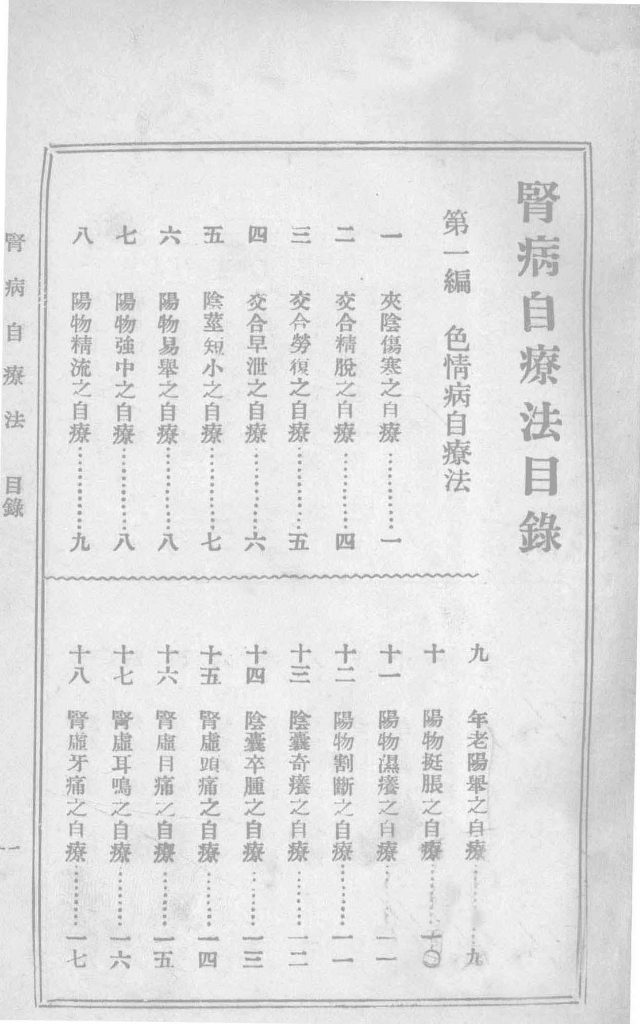 腎病自療法目錄
第一編　色情病自療法
一　夾陰傷寒之自療…………一
二　交合精脫之自療…………四
三　交合勞復之自療…………五
四　交合早泄之自療…………六
五　陰莖短小之自療…………七
六　陽物易舉之自療…………八
七　陽物強中之自療…………八
八　陽物精流之自療…………九
九　年老陽舉之自療…………九
十　陽物挺脹之自療…………一〇
十一　陽物濕癢之自療…………一一
十二　陽物割斷之自療…………一一
十三　陰囊奇癢之自療…………一二
十四　陰囊卒腫之自療…………一三
十五　腎虛頭痛之自療…………一四
十六　腎虛目痛之自療…………一五
十七　腎虛耳鳴之自療…………一六
十八　腎虛牙痛之自療…………一七
腎病自療法　目錄
一